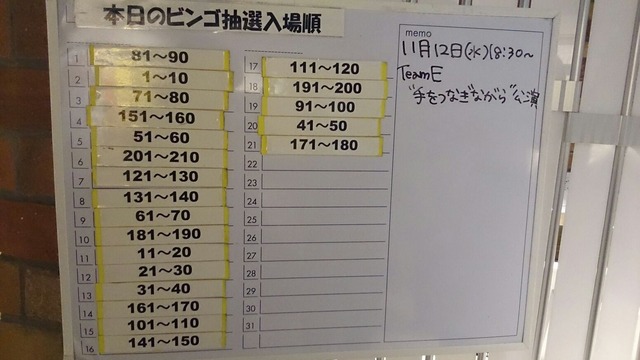 本日のビンゴ抽選入場順
1 81～90
2 1～10
3 71～80
4 151～160
5 51～60
6 201～210
7 121～130
8 131～140
9 61～70
10 181～190
11 11～20
12 21～30
13 31～40
14 161～170
15 101～110
16 141～150
17 111～120
18 191～200
19 91～100
20 41～50
21 171～180
22
23
24
25
26
27
28
29
30
31
memo
11月12日(水)18:30～
TeamE
"手をつなぎながら"公演